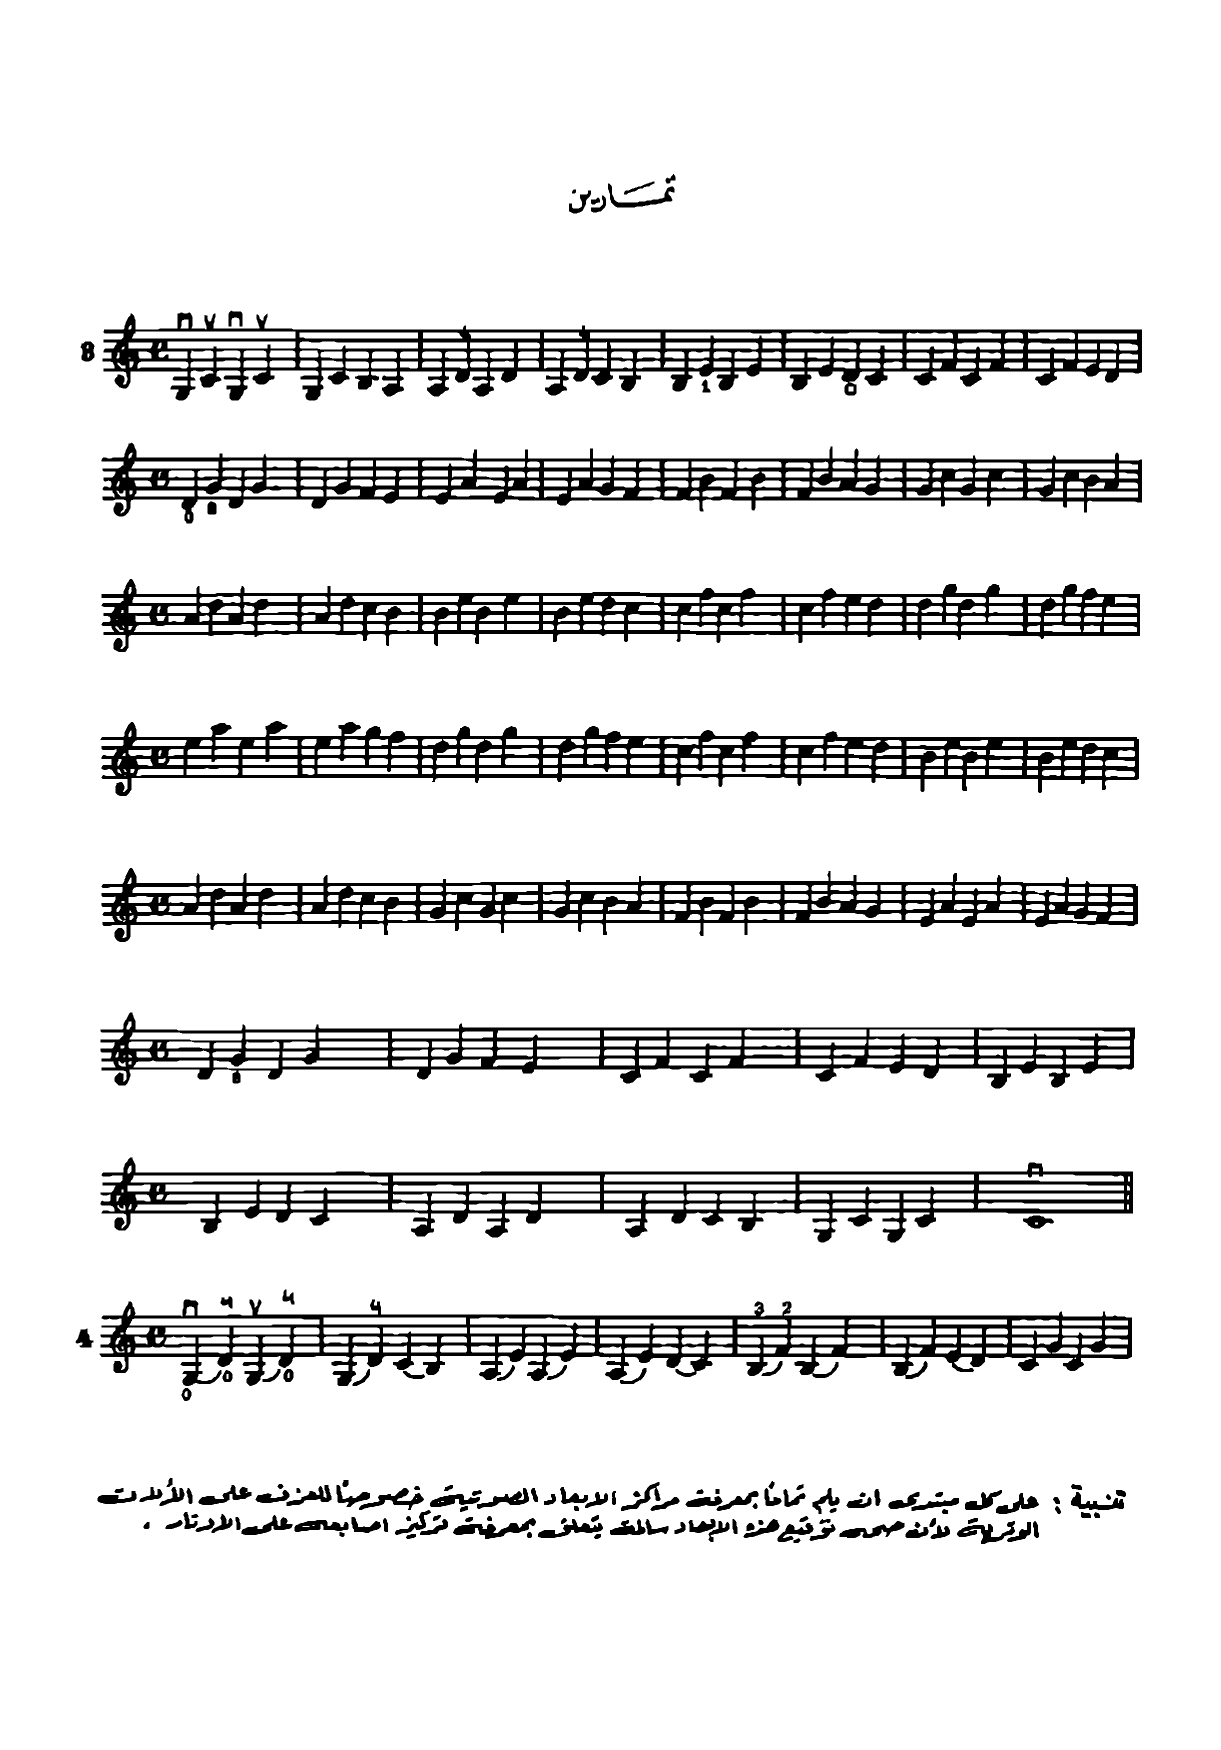 تمارين
8
1
0
4
0 0 0
3 2
تنبية : على كل مبتدى ان يلم تماماً بمعرفت مراكز الابعاد الصوتية خصوصاً للعزف على الألات
الوترية لأن صحت توقيع هذه الابعاد سالمت يتعلق بمعرفت تركيز اصابعى على الاوتار .